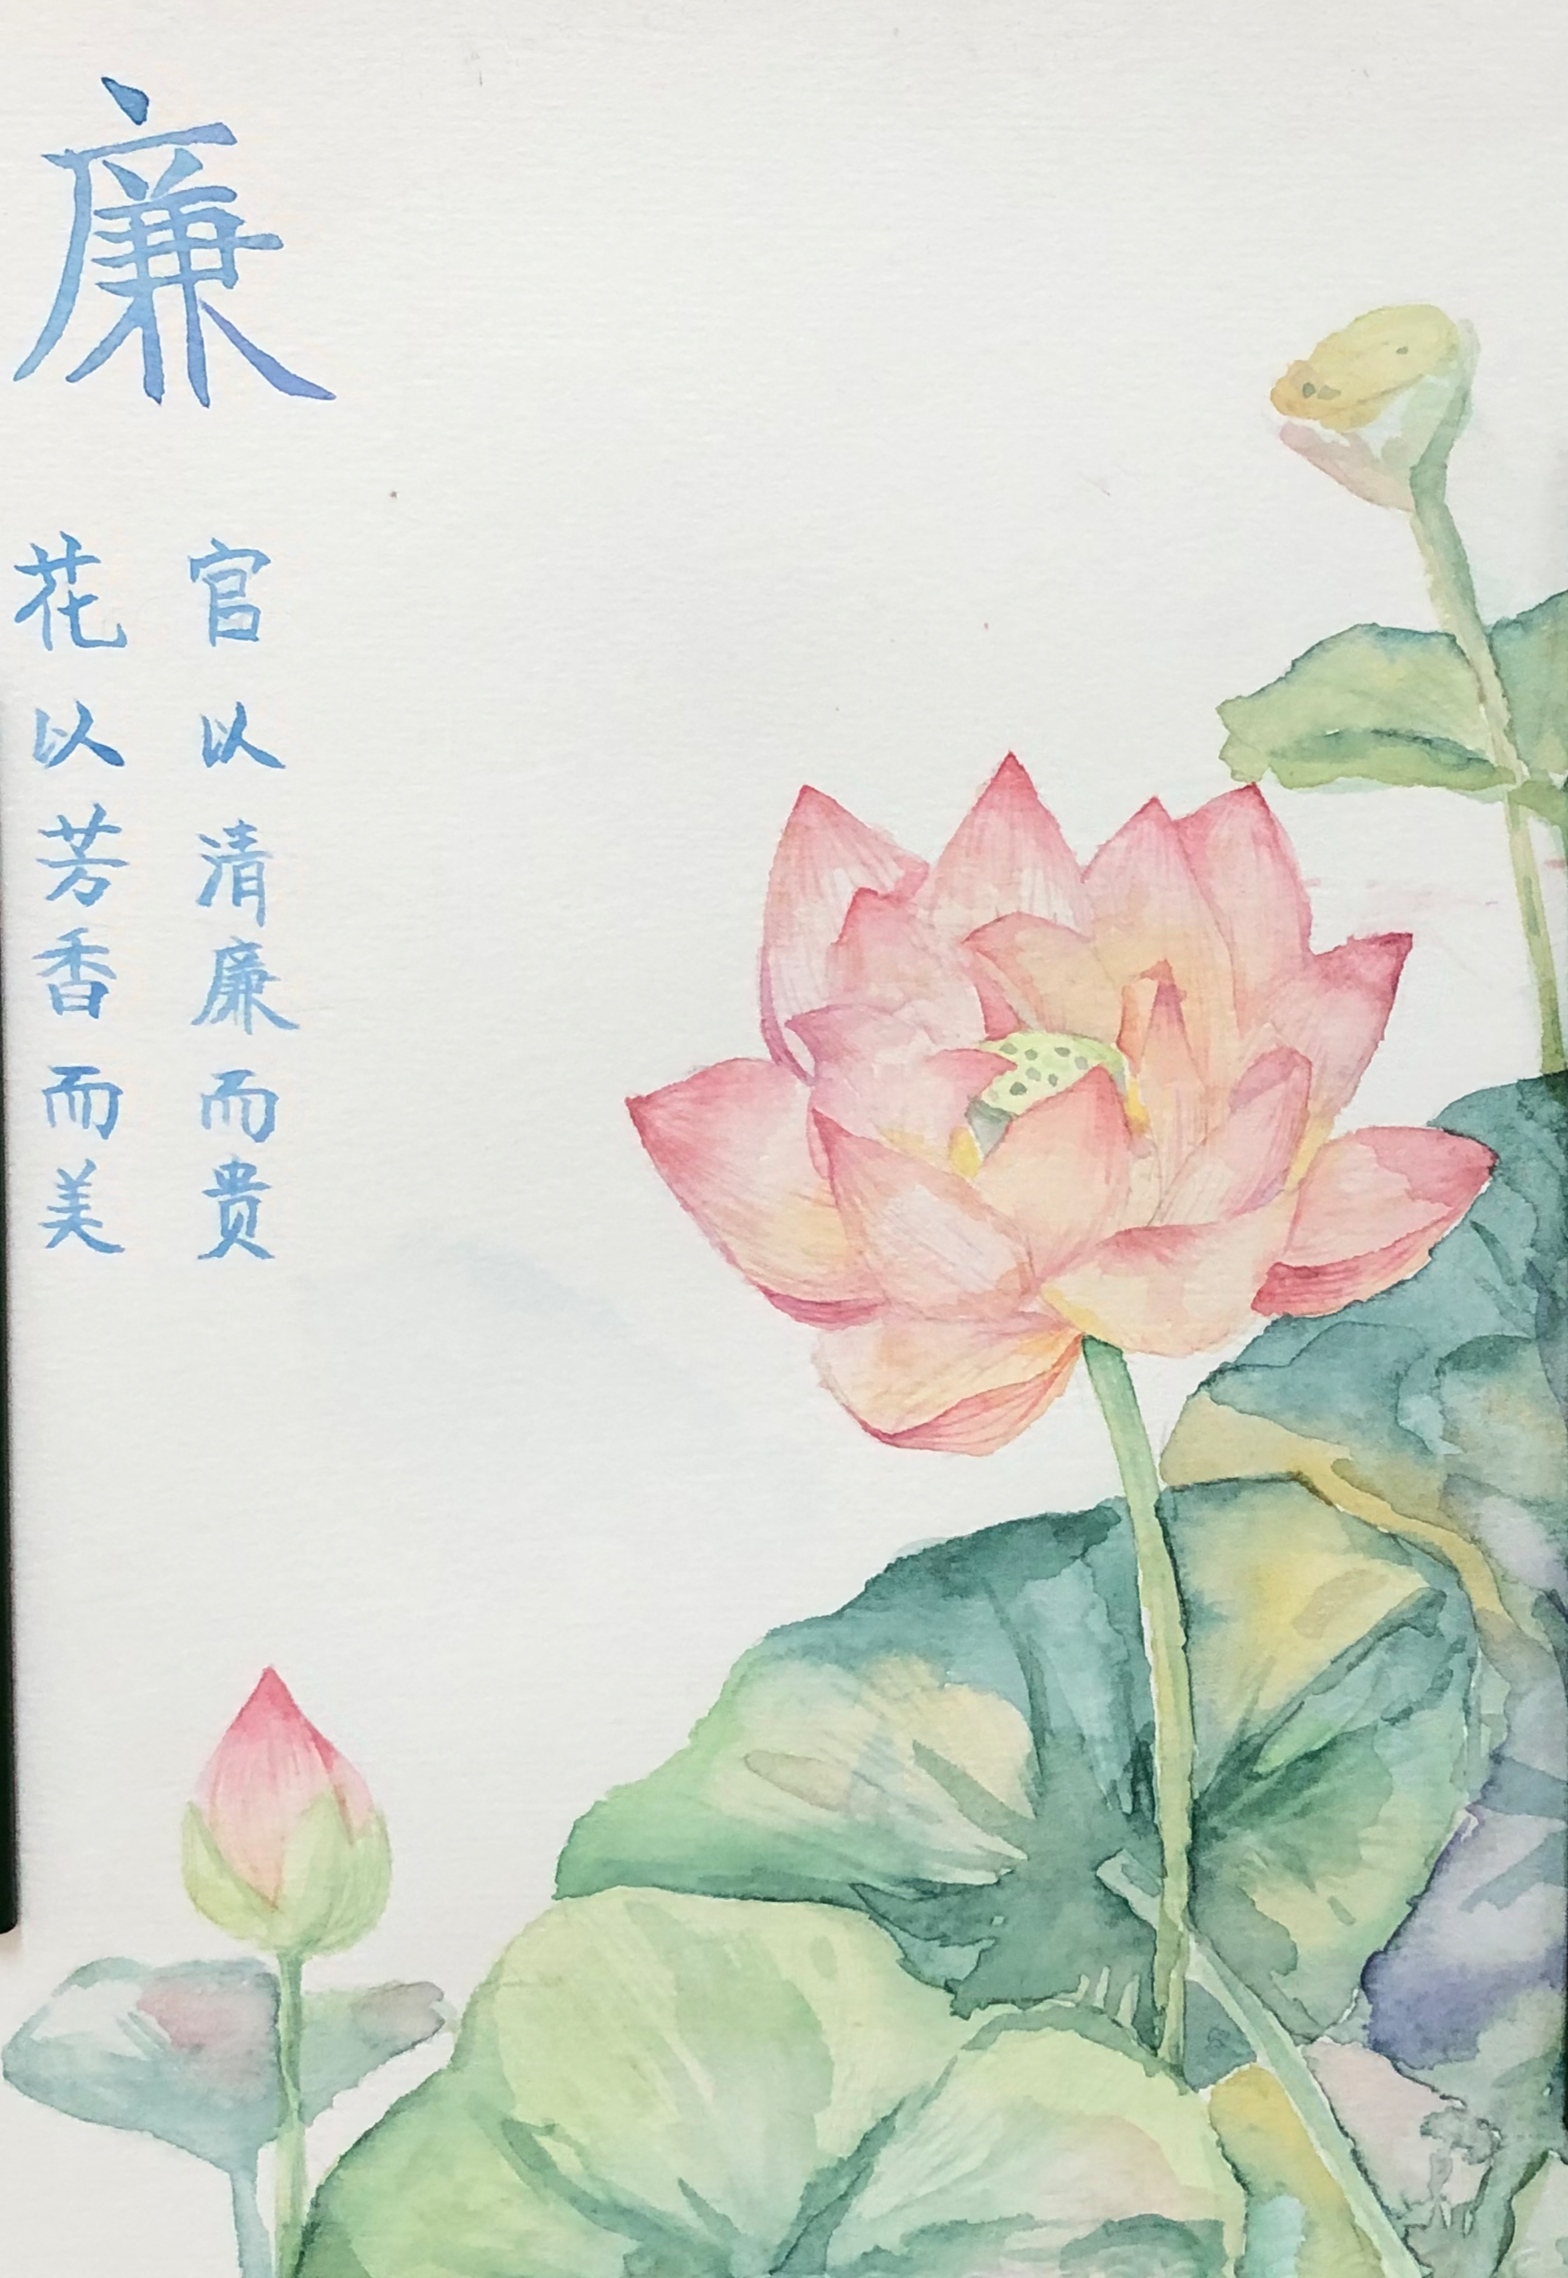 廉
花以芳香而美
官以清廉而贵